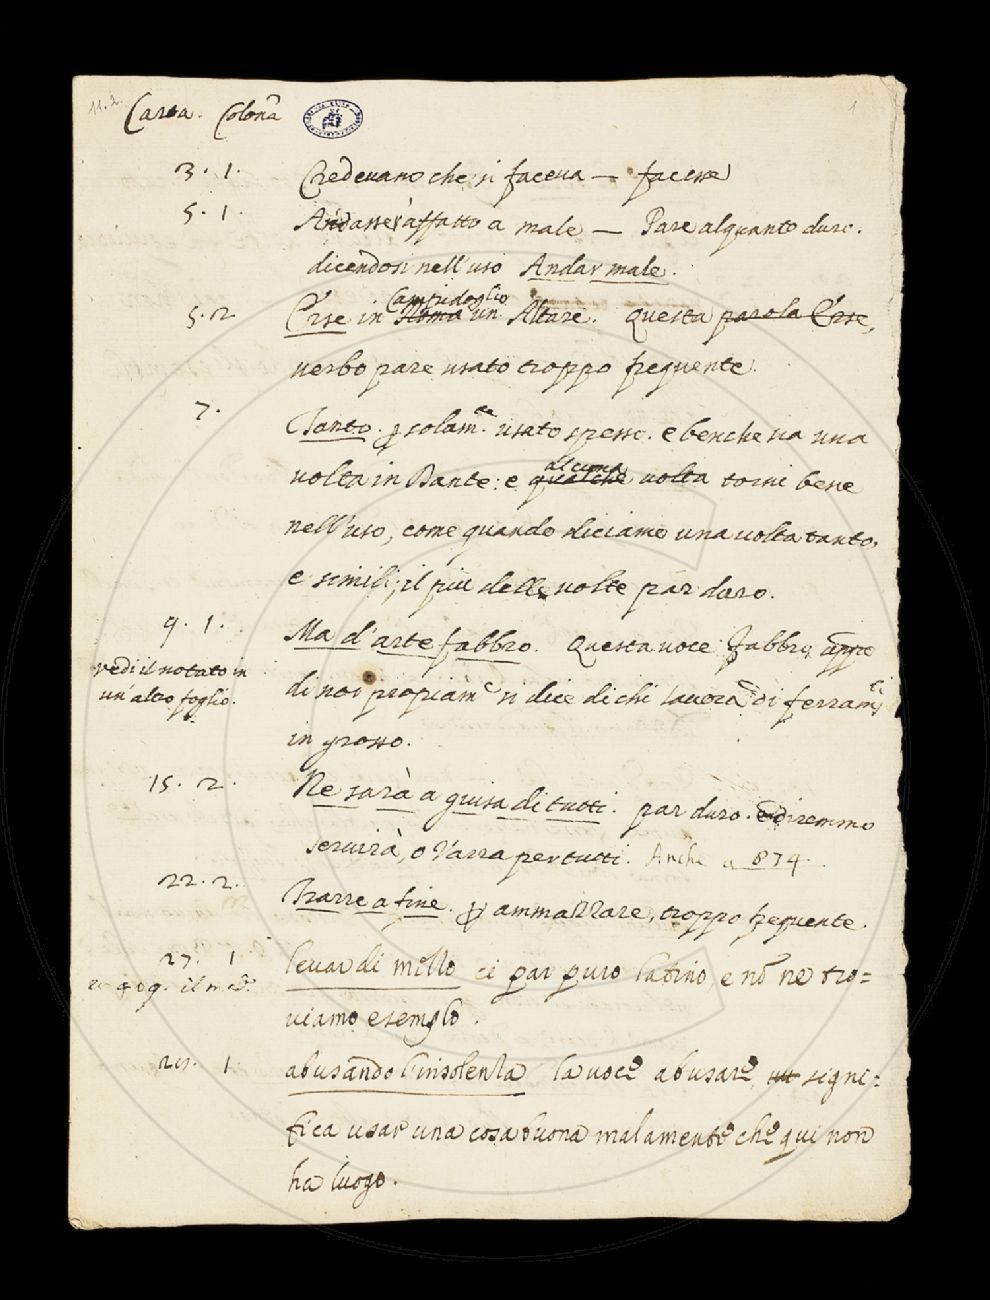 11. 2.
1
Carta. Colonā
3. 1. Credeuano che si faceua — facesse
5. 1. Andasse affatto a male — Pare alquanto duro.
dicendosi nell'uso Andar male.
Campidoglio
5. 2 Erse in Roma un Altare. Questa parola Erse,
verbo pare usato troppo frequente.
7. Tanto. p solam.te usato spesso. e benche sia una
alcuna
volta in Dante: e qualche volta torni bene
nell'uso, come quando diciamo una volta tanto,
e simili; il più delle volte par duro.
9. 1. Ma d'arte fabbro. Questa uoce Fabbro, appo
vedi il notato in
un altro foglio.
di noi propiam.e si dice di chi lauora di ferram.ti
in grosso.
15. 2. Ne sarà a guisa di tutti. par duro. diremmo
seruirà, o Varrà per tutti. Anche a 874.
22. 2. Trarre a fine. p ammazzare, troppo frequente.
27. 1 leuar di mezzo ci par puro latino, e nō ne tro=
uiamo esemplo.
29. 1. abusando l'insolenza la uoce abusare, signi=
fica usar una cosa buona malamente che qui non
ha luogo.